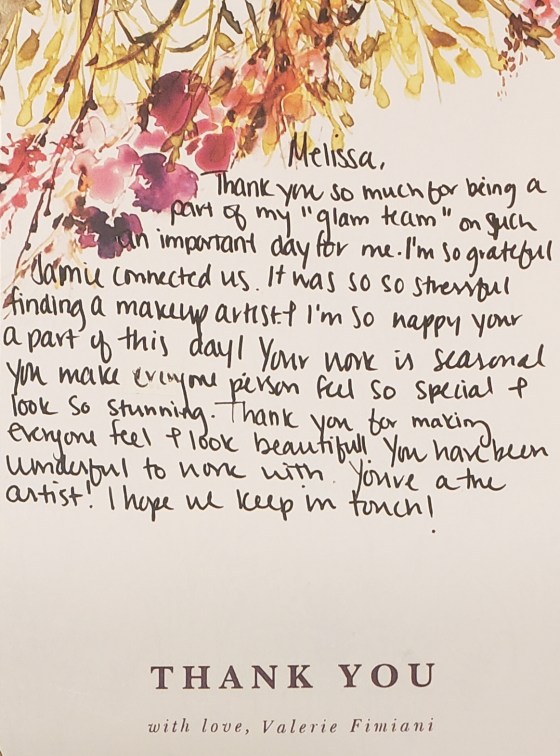 Melissa,
Thank you so much for being a
part of my "glam team" on such
an important day for me. I'm so grateful
Jamie connected us. It was so so stressful
finding a makeup artist & I'm so happy your
a part of this day! Your work is seasonal
you make everyone person feel so special &
look so stunning. Thank you for making
everyone feel & look beautiful! You have been
wonderful to work with. You're a true
artist! I hope we keep in touch!
THANK YOU
with love, Valerie Fimiani